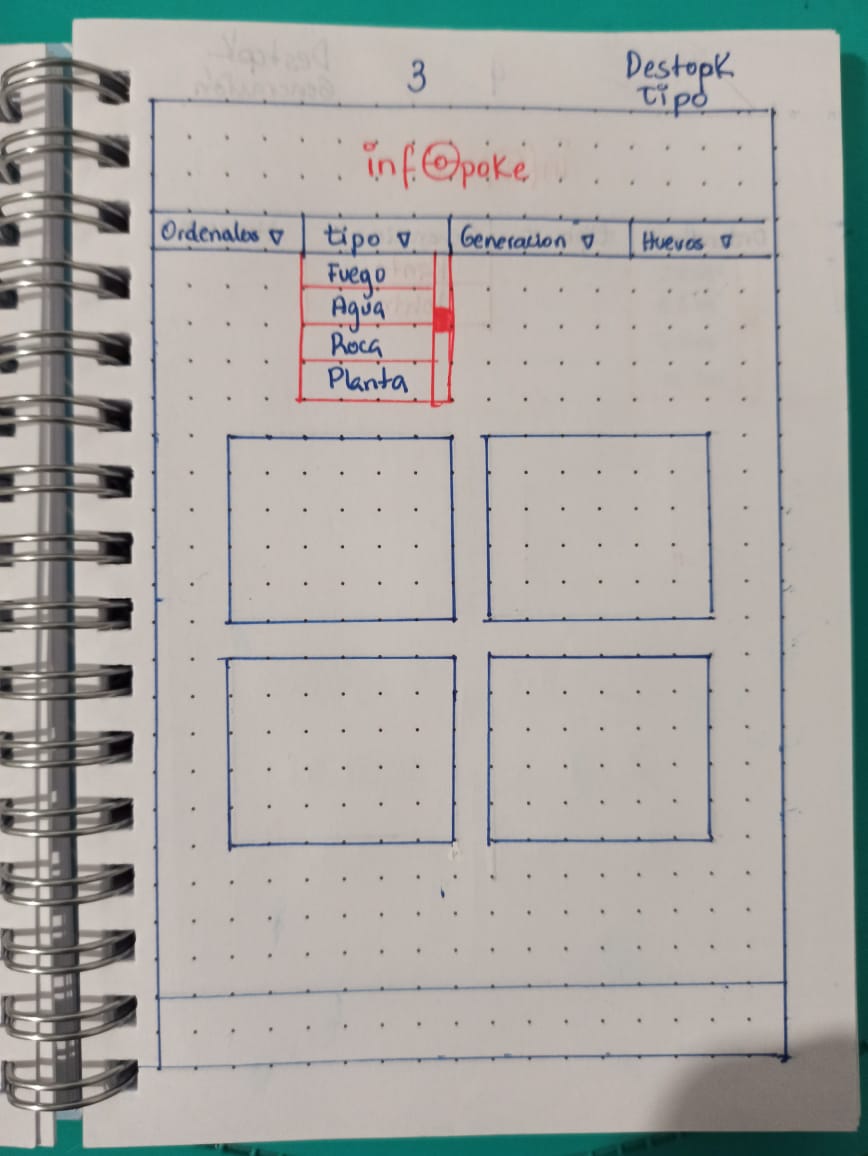 3
Destopk
tipo
infopoke
Ordenalos ▽ tipo ▽ Generacion ▽ Huevos ▽
Fuego
Agua
Roca
Planta